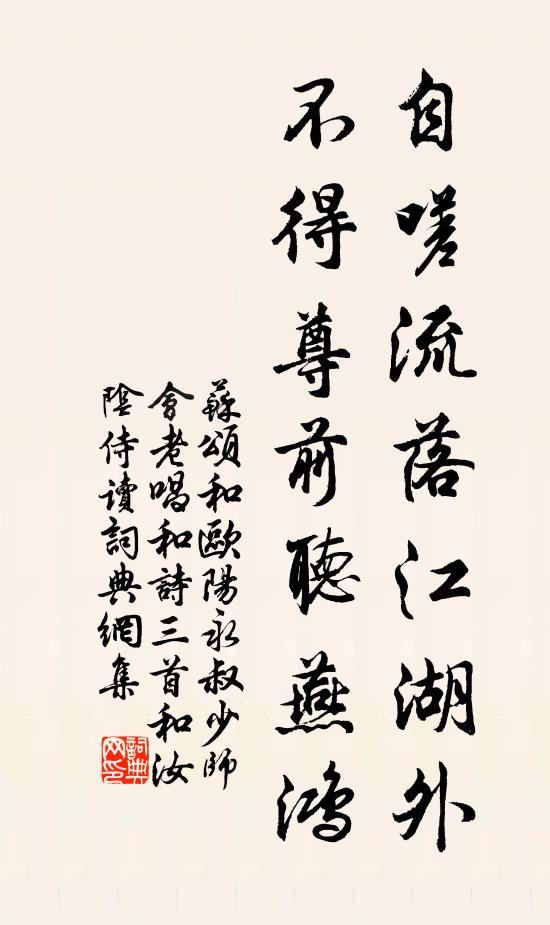 自嗟流落江湖外
不得尊前聽燕鴻
蘇頌和歐陽永叔少師
會老唱和詩三首和汝
陰侍讀詞典網集
詞典
网印